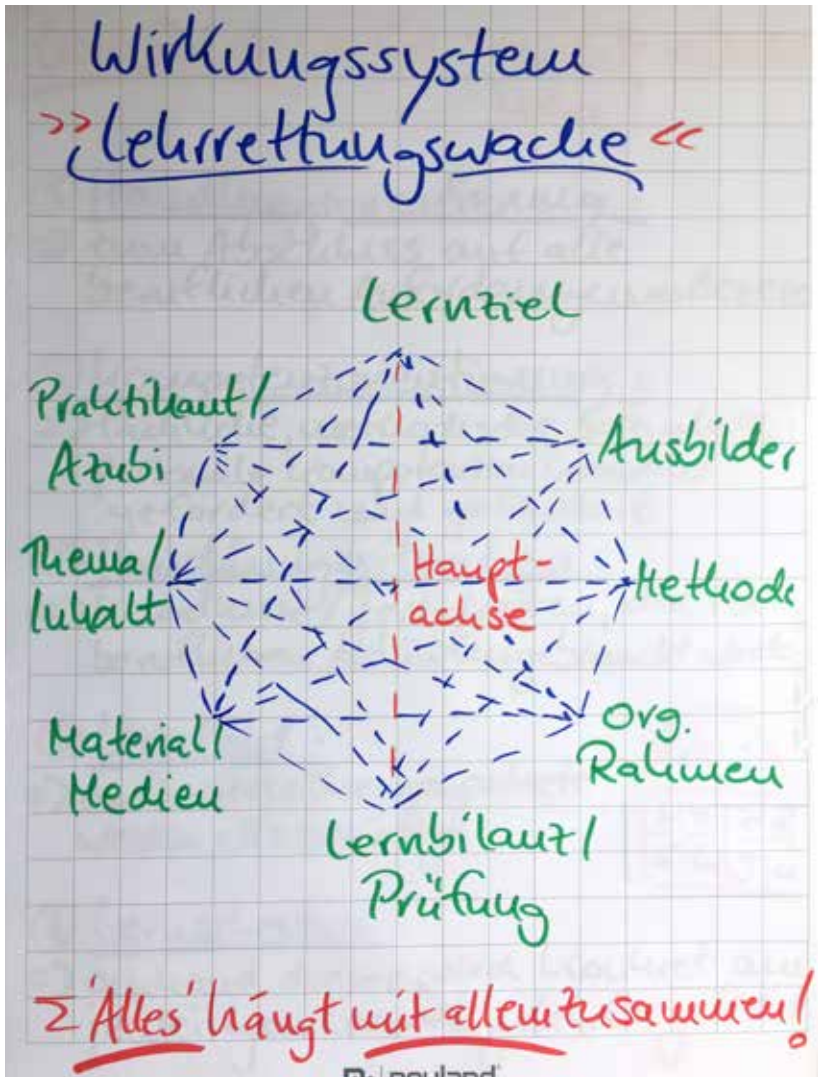 Wirkungssystem
>> Lehrrettungswache <<
Lernziel
Praktikant/
Azubi
Ausbilder
Thema/
Inhalt
Haupt-
achse
Methode
Material/
Medien
Org.
Rahmen
Lernbilanz/
Prüfung
Σ 'Alles' hängt mit allem zusammen!
neuland